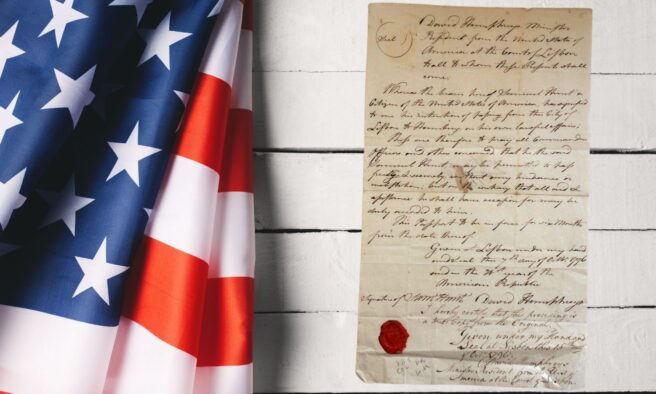 Seal
David Humphreys Minister
Resident from the United States of
America at the Court of Lisbon
to all to whom these Presents shall
come.
Whereas the bearer hereof Hunt a
Citizen of the United States of America, has signified
to me his intention of from the City of
Lisbon to Hamburg on his own lawful affairs,
These are therefore to pray all Commanders
officers and others concerned, that he the said
Hunt may be permitted to pass
freely & securely without any hindrance or
molestation, but on the contrary that all
assistance he shall have occasion for may be
duly accorded to him.
This Passport to be in force for six Months
from the date thereof.
Given at Lisbon under my hand
and seal this 7th day of 1796
and in the year of the
American Republic
Signature of David Humphreys
I hereby certify that the preceding is
a true Copy from the Original,
Given under my Hand and
Seal at Lisbon this
Minister Resident from the States of
America at the Court of Lisbon